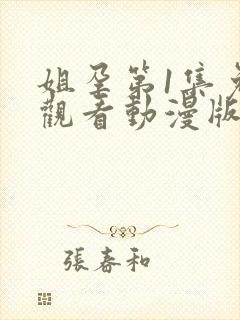 姐孕第1集免
觀看動漫版
張春和